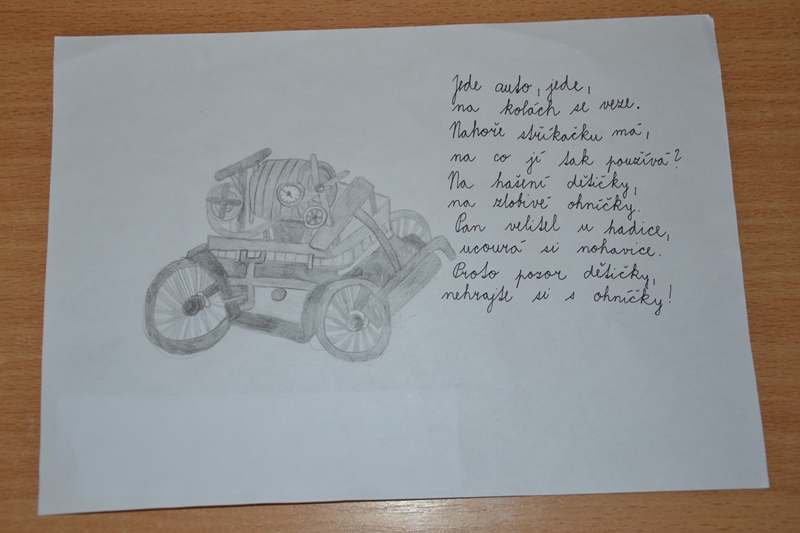 Jede auto, jede,
na kolách se veze.
Nahoře stříkačku má,
na co jí tak používá?
Na hašení dětičky,
na zlobivé ohníčky.
Pan velitel u hadice,
ucourá si nohavice.
Proto pozor dětičky,
nehrajte si s ohníčky!